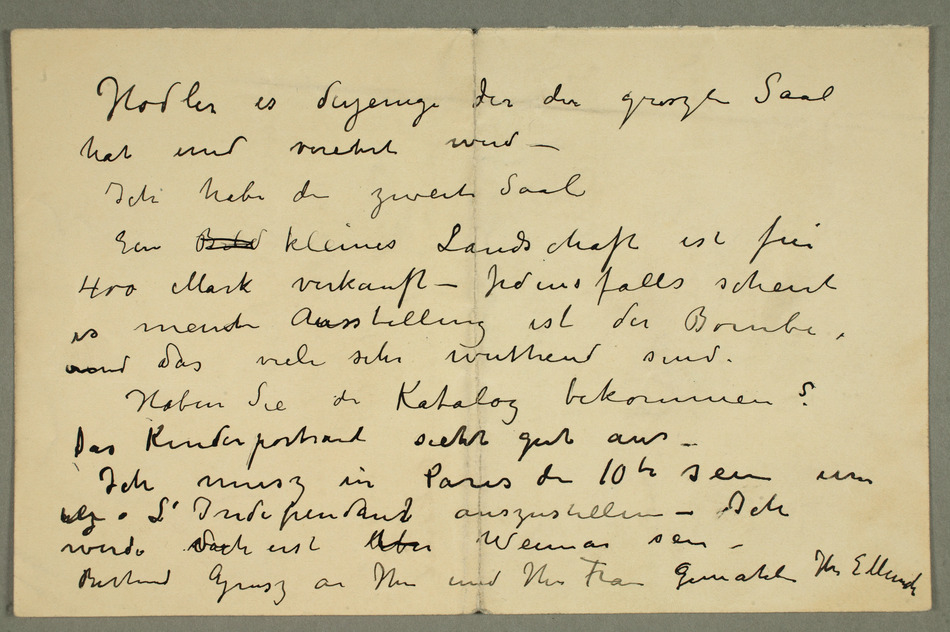 Hodler es derjenige der der groszte Saal
hat und verehrt wird —
Ich habe der zweite Saal
Ein Bild kleines Landschaft ist für
400 Mark verkauft — Jedensfalls scheint
es Ausstellung ist der Bombe,
und das viele sehr wuthend sind.
Haben Sie de Katalog bekommen?
Das Kinderportrait sieht gut aus —
Ich musz in Paris de 10te sein um
L'Independant auszustellen — Ich
werde erst Weimar sein —
Grusz an Ihn und Ihre Frau Gemahlin Ihr